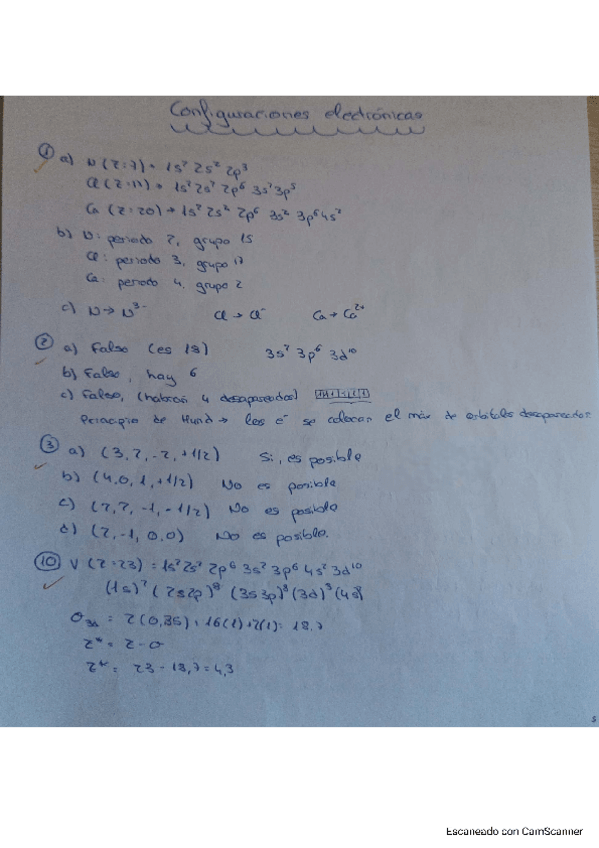 Configuraciones electrónicas
① a) N (Z=7) = 1s² 2s² 2p³
Cl (Z=17) = 1s² 2s² 2p⁶ 3s² 3p⁵
Ca (Z=20) → 1s² 2s² 2p⁶ 3s² 3p⁶ 4s²
b) N: periodo 2, grupo 15
Cl: periodo 3, grupo 17
Ca: periodo 4, grupo 2
c) N → N³⁻ Cl → Cl⁻ Ca → Ca²⁺
② a) Falso (es 18) 3s² 3p⁶ 3d¹⁰
b) Falso, hay 6
c) Falso, (habrán 4 desapareados)
Principio de Hund → los é se colocan el máx de orbitales desapareados
③ a) (3, 2, -2, +1/2) Si, es posible
b) (4, 0, 1, +1/2) No es posible
c) (2, 2, -1, -1/2) No es posible
d) (2, -1, 0, 0) No es posible.
⑩ V (Z=23) = 1s² 2s² 2p⁶ 3s² 3p⁶ 4s² 3d¹⁰
(1s)² (2s2p)⁸ (3s3p)⁸ (3d)³ (4s)
σ3d = 2(0,35) + 16(1) + 2(1) = 18,7
Z* = Z - σ
Z* = 23 - 18,7 = 4,3
5
Escaneado con CamScanner